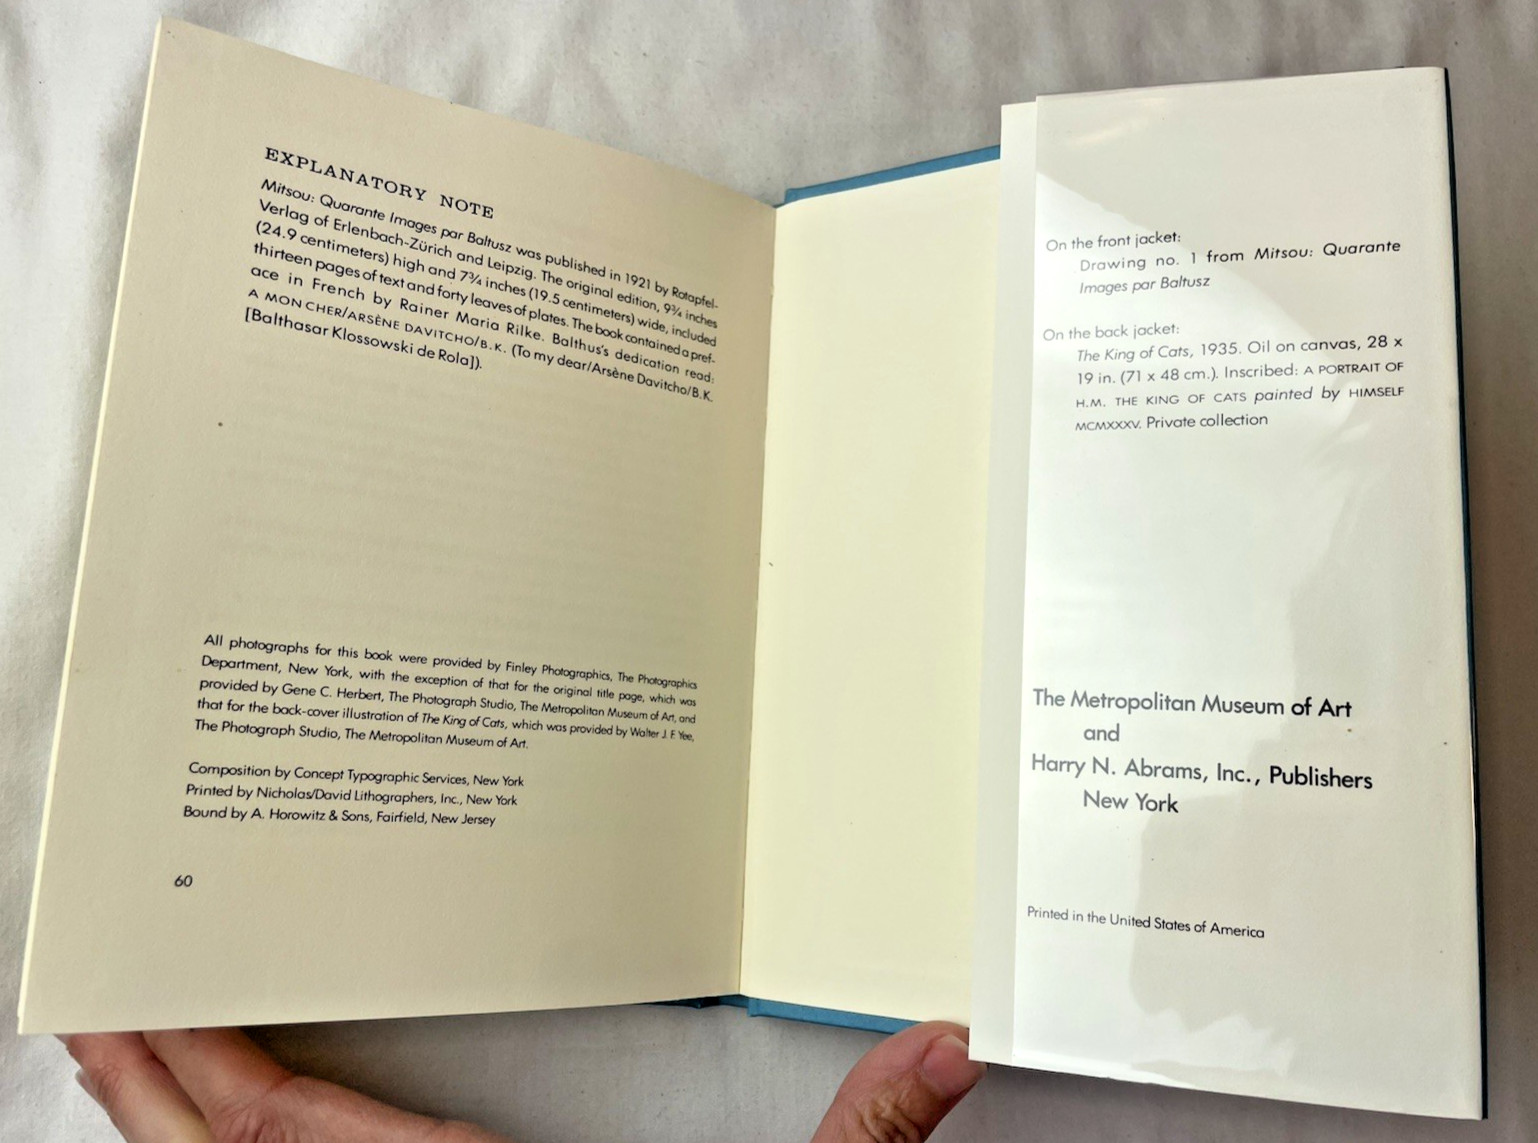 EXPLANATORY NOTE
Mitsou: Quarante Images par Baltusz was published in 1921 by Rotapfel-
Verlag of Erlenbach-Zürich and Leipzig. The original edition, 9¾ inches
(24.9 centimeters) high and 7¾ inches (19.5 centimeters) wide, included
thirteen pages of text and forty leaves of plates. The book contained a pref-
ace in French by Rainer Maria Rilke. Balthus's dedication read:
A MON CHER/ARSÈNE DAVITCHO/B.K. (To my dear/Arsène Davitcho/B.K.
[Balthasar Klossowski de Rola]).
All photographs for this book were provided by Finley Photographics, The Photographics
Department, New York, with the exception of that for the original title page, which was
provided by Gene C. Herbert, The Photograph Studio, The Metropolitan Museum of Art, and
that for the back-cover illustration of The King of Cats, which was provided by Walter J. F. Yee,
The Photograph Studio, The Metropolitan Museum of Art.
Composition by Concept Typographic Services, New York
Printed by Nicholas/David Lithographers, Inc., New York
Bound by A. Horowitz & Sons, Fairfield, New Jersey
60
On the front jacket:
Drawing no. 1 from Mitsou: Quarante
Images par Baltusz
On the back jacket:
The King of Cats, 1935. Oil on canvas, 28 x
19 in. (71 x 48 cm.). Inscribed: A PORTRAIT OF
H.M. THE KING OF CATS painted by HIMSELF
MCMXXXV. Private collection
The Metropolitan Museum of Art
and
Harry N. Abrams, Inc., Publishers
New York
Printed in the United States of America